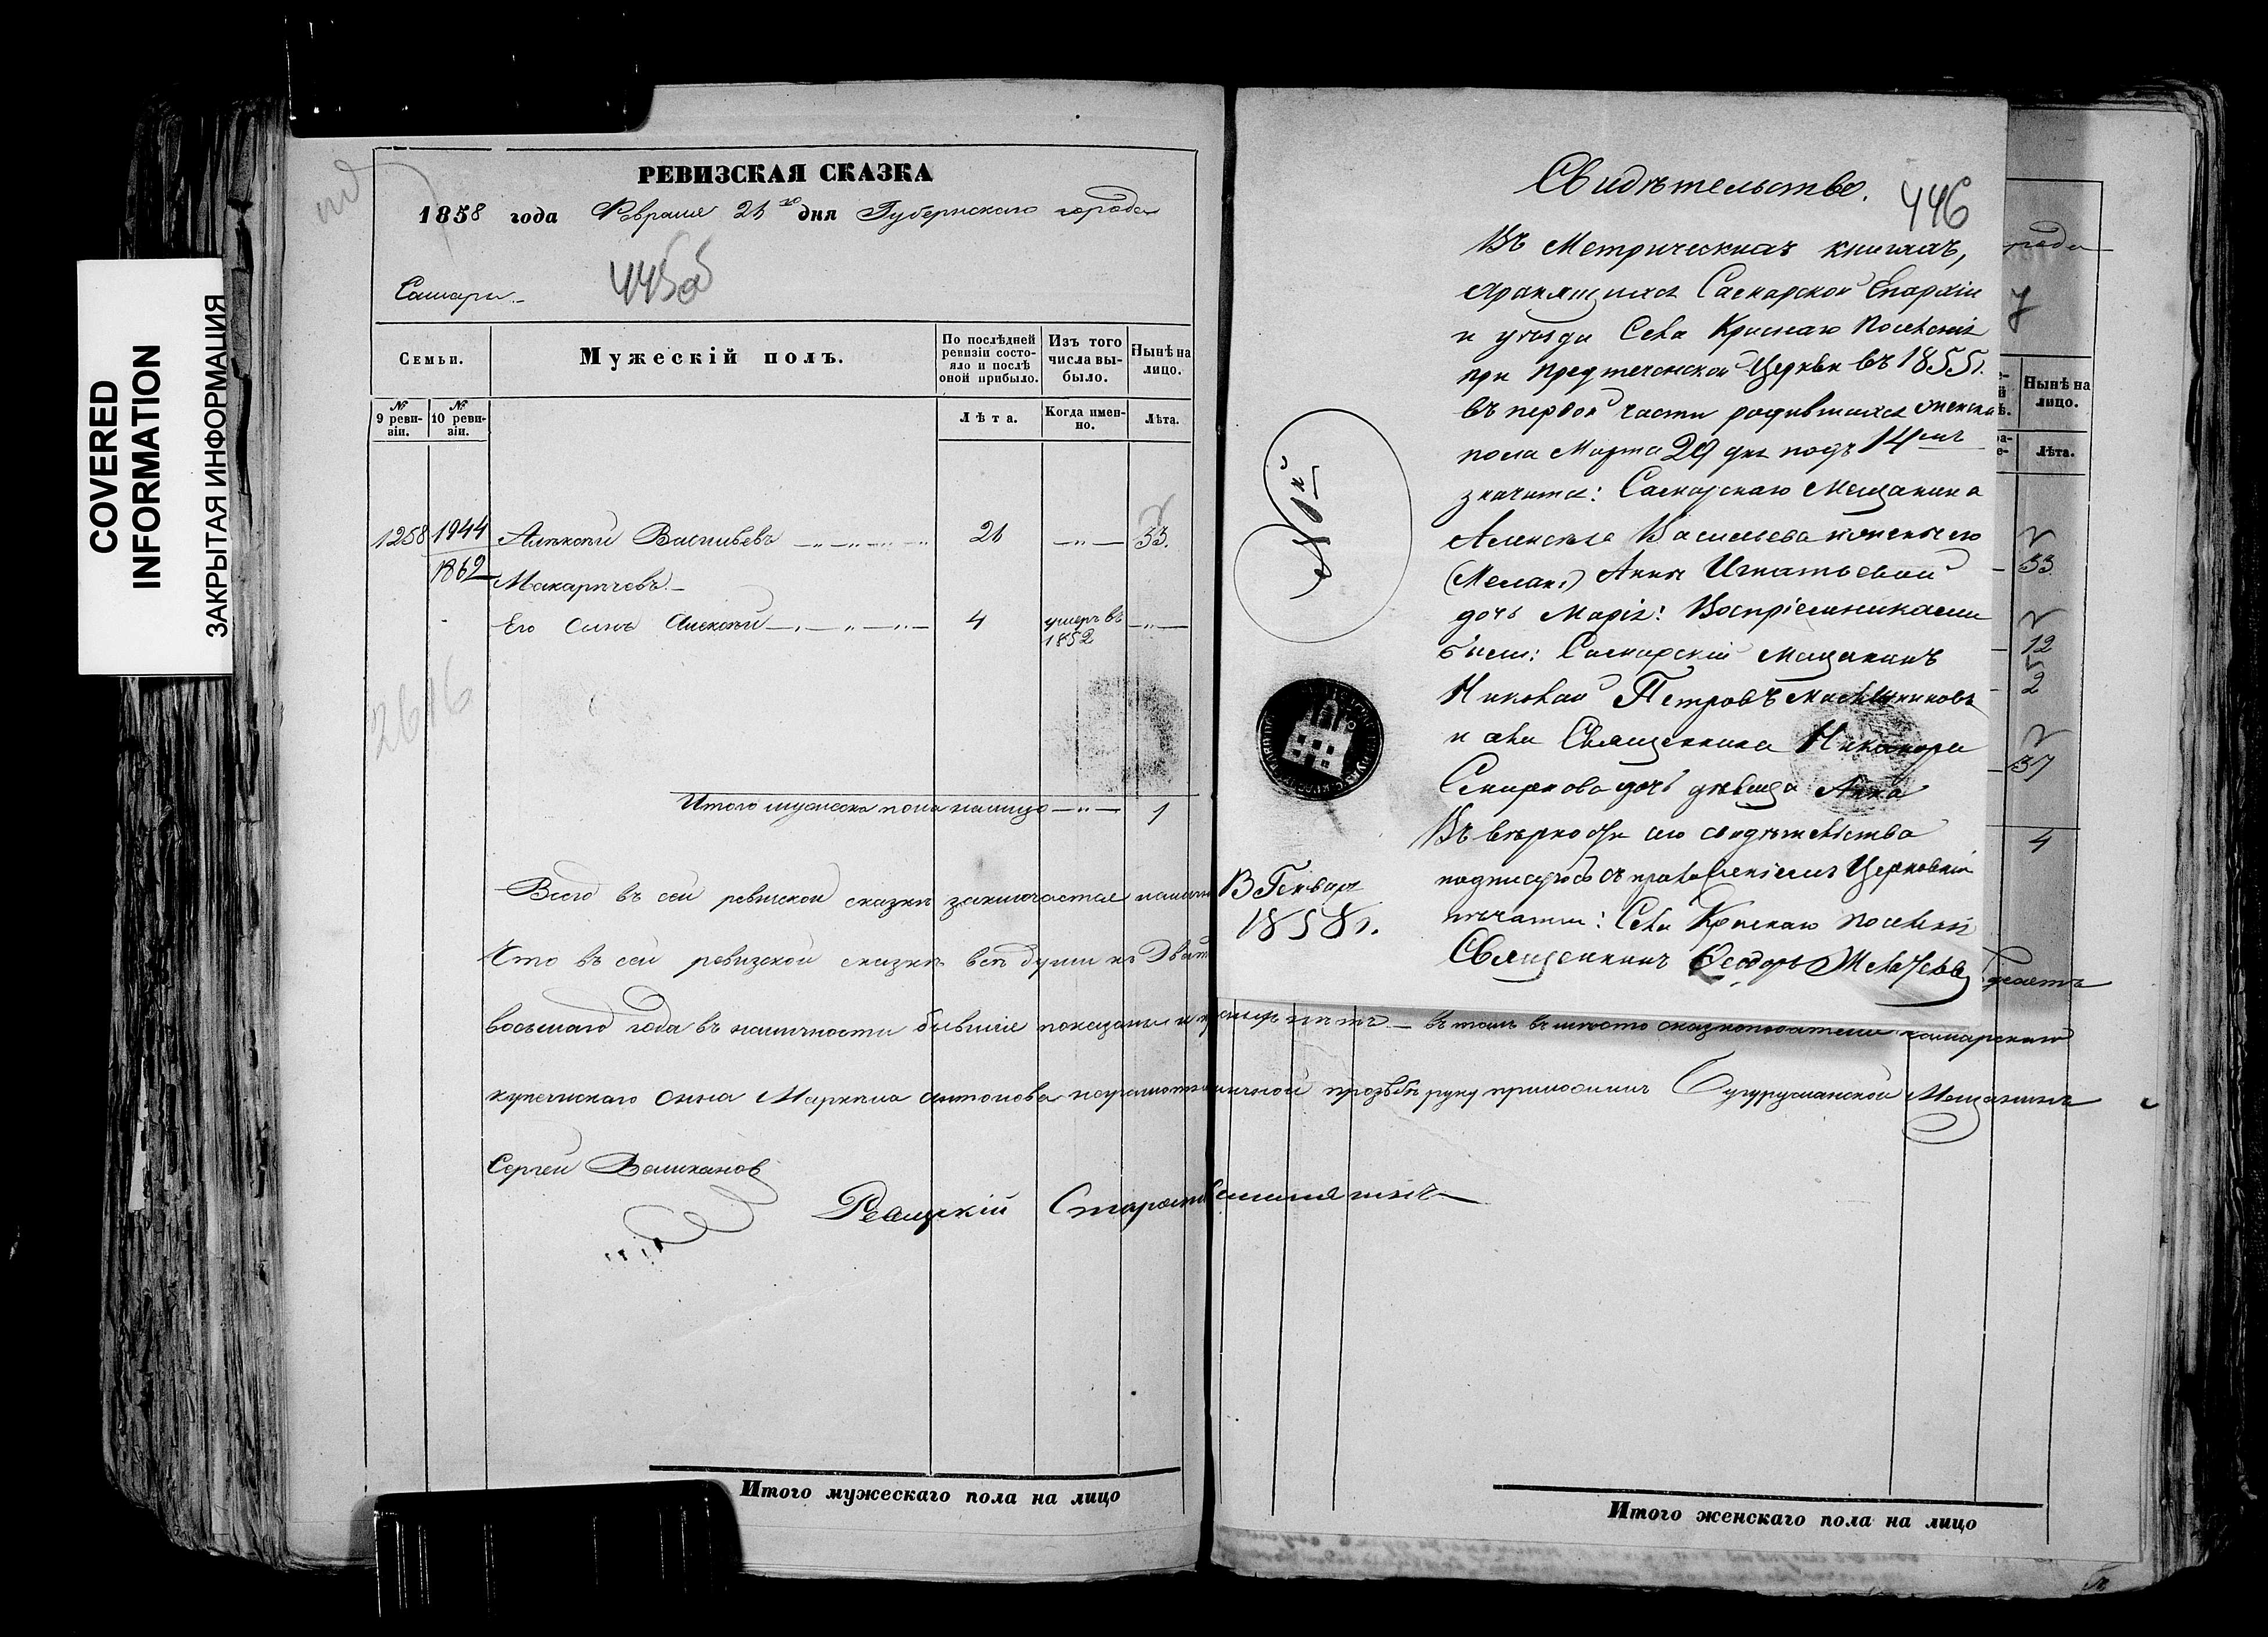 COVERED
INFORMATION
ЗАКРЫТАЯ ИНФОРМАЦИЯ
РЕВИЗСКАЯ СКАЗКА
1858 года Февраля 21 го дня Губернскаго города
Самары.
445об
Семьи.
Мужескій полъ.
По послѣдней ревизіи состояло и послѣ оной прибыло.
Изъ того числа выбыло.
Нынѣ на лицо.
№ 9 ревизіи.
№ 10 ревизіи.
Лѣта.
Когда именно.
Лѣта.
1258 1944 Алексѣй Васильевъ 33.
1862 Макарычевъ.
Его сынъ Алексѣй 4 умеръ въ 1852
2616
Итого мужеска пола налицо 1
Всего въ сей ревизской сказкѣ заключается
Что въ сей ревизской сказкѣ всѣ души
восьмаго года въ наличности бывшіе показаны и
въ томъ вмѣсто сказкоподателя Самарскаго
купеческаго сына Маркела Антонова
прозьбѣ руку приложилъ Бугурусланской Мещанинъ
Сергей Великановъ
Итого мужескаго пола на лицо
Свидѣтельство.
446
Въ Метрическихъ книгахъ,
хранящихся Самарской Епархіи
и уѣзда Села Краснаго Поселенія
при Предтеченской Церкви въ 1855 г.
въ первой части родившихся женска
пола Марта 29 дня подъ 14мъ
значится: Самарскаго Мещанина
Алексѣя Васильева и жены его
Анны Игнатьевой
дочь Марія: Воспріемниками
были: Самарскій мещанинъ
Николай Петровъ Масленниковъ
и села Священника Никанора
Смирнова дочь дѣвица Анна
Въ вѣрности сего свидѣтельства
подписуюсь съ приложеніемъ Церковной
печати: Села Краснаго Поселенія
Священникъ Феодоръ
Генваря
1858 г.
Нынѣ на лицо.
Лѣта.
33
12
2
37
4
Итого женскаго пола на лицо